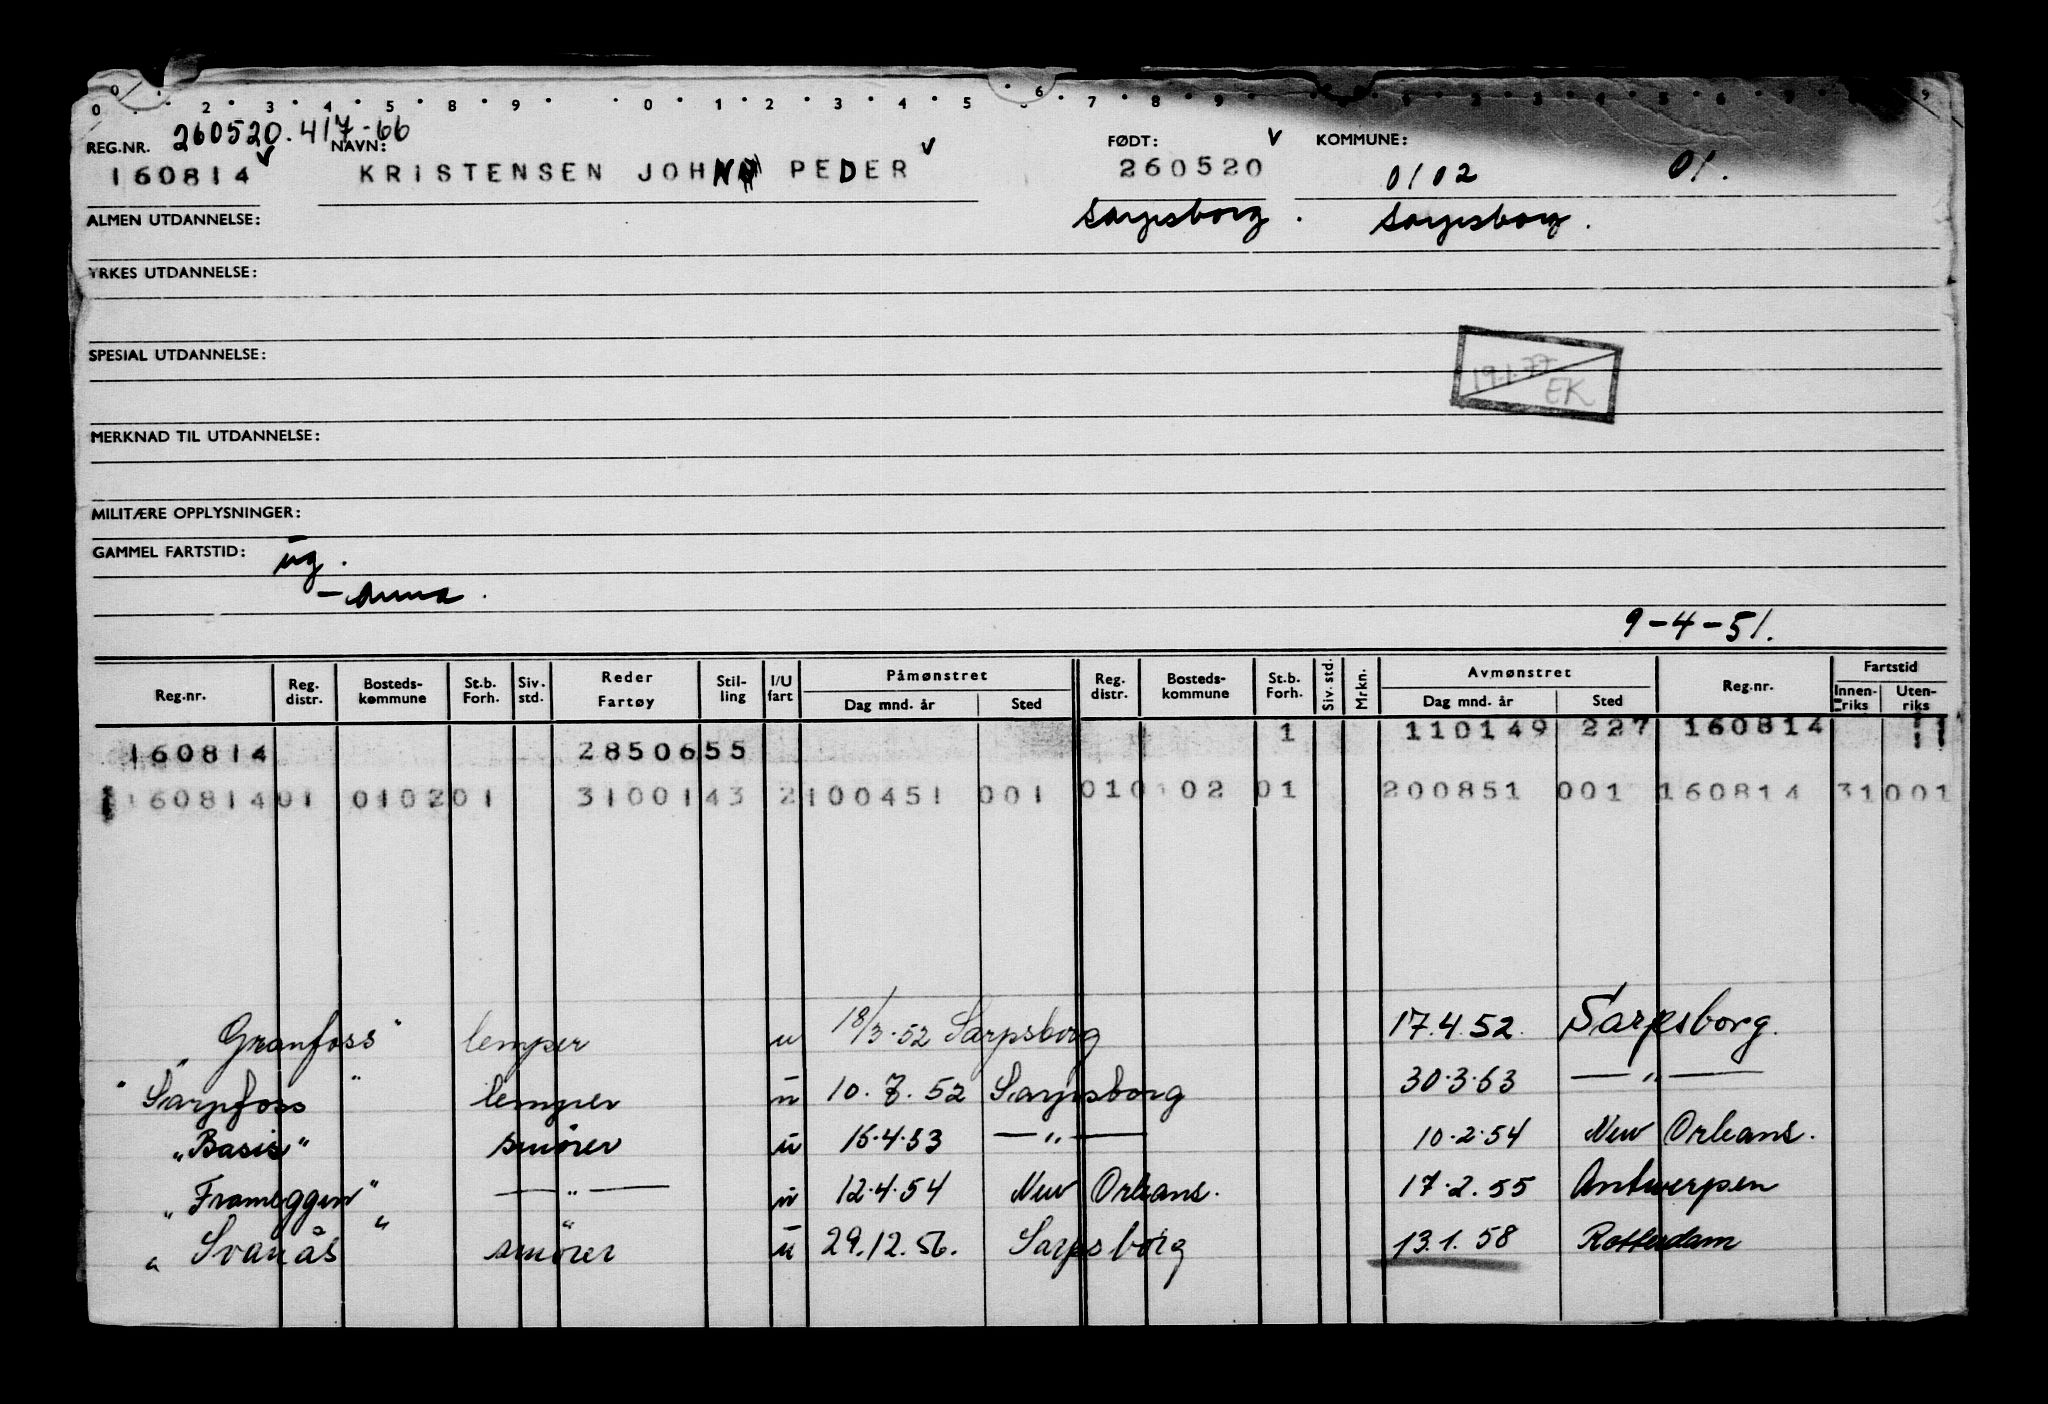 0 0 . 2 . 3 . 4 . 5 . 8 . 9 . 0 . 1 . 2 . 3 . 4 . 5 . 6 . 7 . 8 . 9
260520.417-66
REG.NR. NAVN: FØDT: v KOMMUNE:
160814 v KRISTENSEN JOHN PEDER v 260520 0102 01.
ALMEN UTDANNELSE: Sarpsborg. Sarpsborg.
YRKES UTDANNELSE:
SPESIAL UTDANNELSE:
19.1.77 EK
MERKNAD TIL UTDANNELSE:
MILITÆRE OPPLYSNINGER:
GAMMEL FARTSTID: ug.
- anna.
9-4-51.
Reg.nr. Reg. distr. Bosteds-kommune St.b. Forh. Siv. std. Reder Fartøy Stil-ling I/U fart Påmønstret Dag mnd. år Sted Reg. distr. Bosteds-kommune St.b. Forh. Siv. std. Mrkn. Avmønstret Dag mnd. år Sted Reg.nr. Fartstid Innen-riks Uten-riks
160814 2850655 1 110149 227 160814 11
160814 01 0102 01 3100143 2 100451 001 01 0102 01 200851 001 160814 31 001
"Granfoss" lemper u 18/3.52 Sarpsborg 17.4.52. Sarpsborg.
"Sarpfoss" lemper u 10.7.52 Sarpsborg 30.3.63 — " —
"Basis" smører u 15.4.53 — " — 10.2.54 New Orleans.
"Frameggen" — " — u 12.4.54 New Orleans. 17.2.55 Antwerpen
"Svanås" smører u 29.12.56. Sarpsborg 13.1.58 Rotterdam